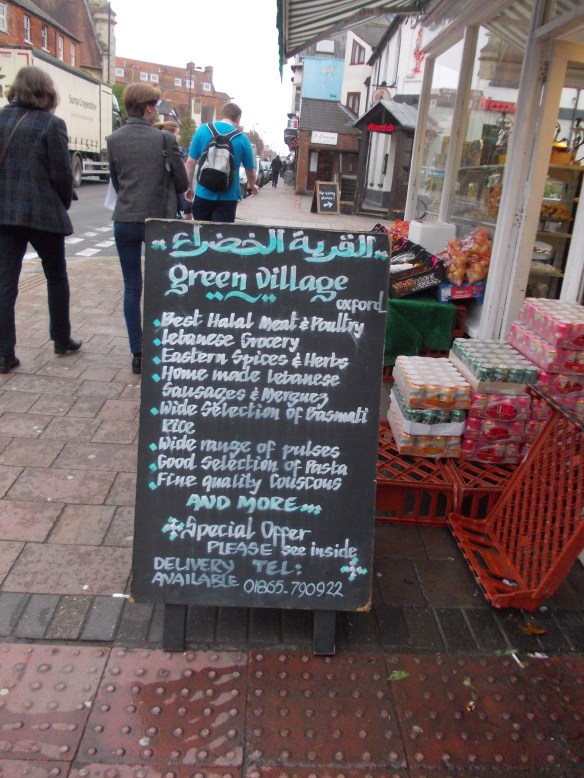 القرية الخضراء
Green Village
oxford
Best Halal Meat & Poultry
Lebanese Grocery
Eastern Spices & Herbs
Home made Lebanese
Sausages & Merguez
Wide Selection of Basmati
Rice
Wide range of pulses
Good Selection of Pasta
Fine quality Couscous
AND MORE...
Special Offer
PLEASE see inside
DELIVERY TEL:
AVAILABLE 01865-790922